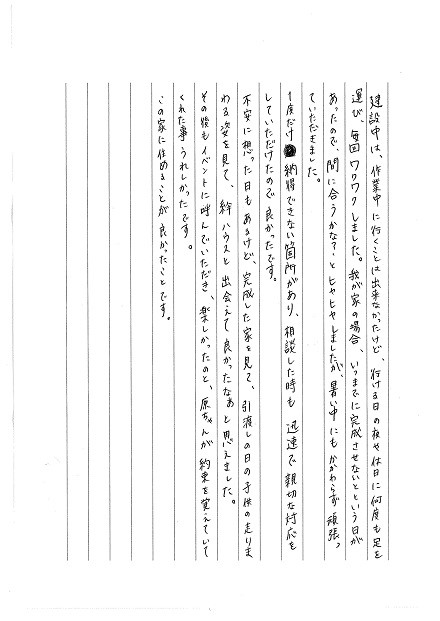 建設中は、作業中に行くことは出来なかったけど、行ける日の夜や休日に何度も足を
運び、毎回ワクワクしました。我が家の場合、いつまでに完成させないとという日が
あったので、間に合うかな?とヒヤヒヤしましたが、暑い中にもかかわらず頑張っ
ていただきました。
1度だけ納得できない箇所があり、相談した時も迅速で親切な対応を
していただけたので良かったです。
不安に想った日もあるけど、完成した家を見て、引渡しの日の子供の走りま
わる姿を見て、絆ハウスと出会えて良かったなぁと思えました。
その後もイベントに呼んでいただき、楽しかったのと、原ちゃんが約束を覚えていて
くれた事うれしかったです。
この家に住めることが良かったことです。